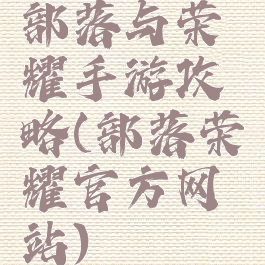 部落与荣
耀手游攻
略(部落荣
耀官方网
站)